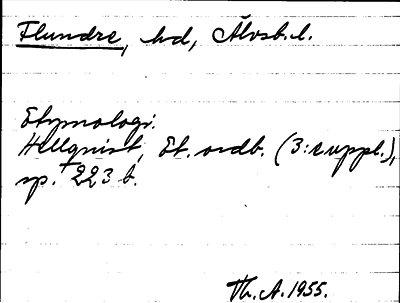 Flundre, hd, Älvsb.l.
Etymologi.
Hellquist, Et. ordb. (3:e uppl.),
sp. 223 b.
Th. A. 1955.